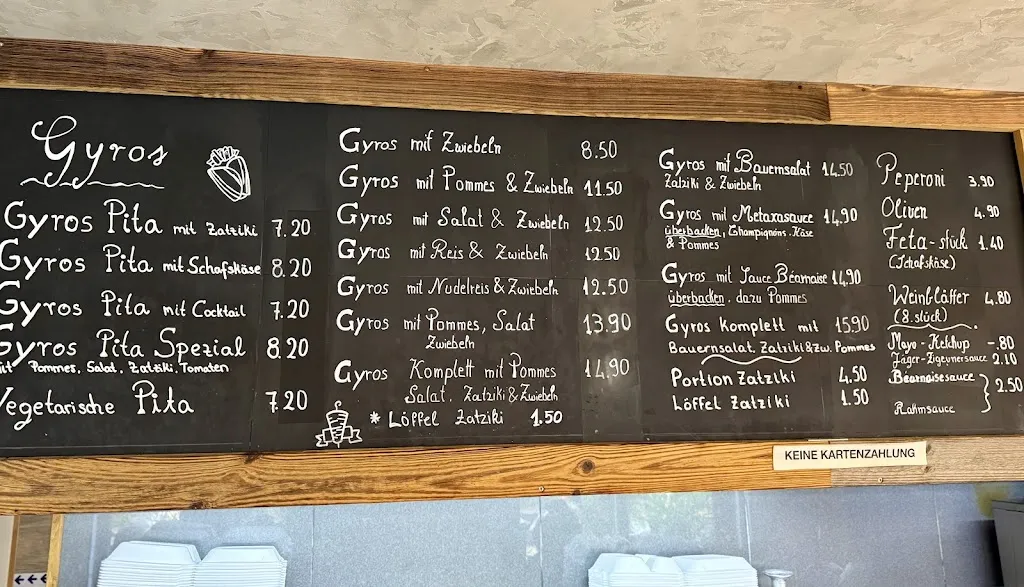 Gyros
Gyros Pita mit Zatziki 7.20
Gyros Pita mit Schafskäse 8.20
Gyros Pita mit Cocktail 7.20
Gyros Pita Spezial 8.20
mit Pommes, Salat, Zatziki, Tomaten
Vegetarische Pita 7.20
Gyros mit Zwiebeln 8.50
Gyros mit Pommes & Zwiebeln 11.50
Gyros mit Salat & Zwiebeln 12.50
Gyros mit Reis & Zwiebeln 12.50
Gyros mit Nudelreis & Zwiebeln 12.50
Gyros mit Pommes, Salat 13.90
Zwiebeln
Gyros Komplett mit Pommes 14.90
Salat, Zatziki & Zwiebeln
* Löffel Zatziki 1.50
Gyros mit Bauernsalat 14.50
Zatziki & Zwiebeln
Gyros mit Metaxasauce 14.90
überbacken, Champignons, Käse
& Pommes
Gyros mit Sauce Béarnaise 14.90
überbacken, dazu Pommes
Gyros Komplett mit 15.90
Bauernsalat, Zatziki & Zw. Pommes
Portion Zatziki 4.50
Löffel Zatziki 1.50
Peperoni 3.90
Oliven 4.90
Feta-stück 1.40
(Schafskäse)
Weinblätter 4.80
(8.stück)
Mayo-Ketchup -.80
Jäger-Zigeunersauce 2.10
Béarnaisesauce
2.50
Rahmsauce
KEINE KARTENZAHLUNG